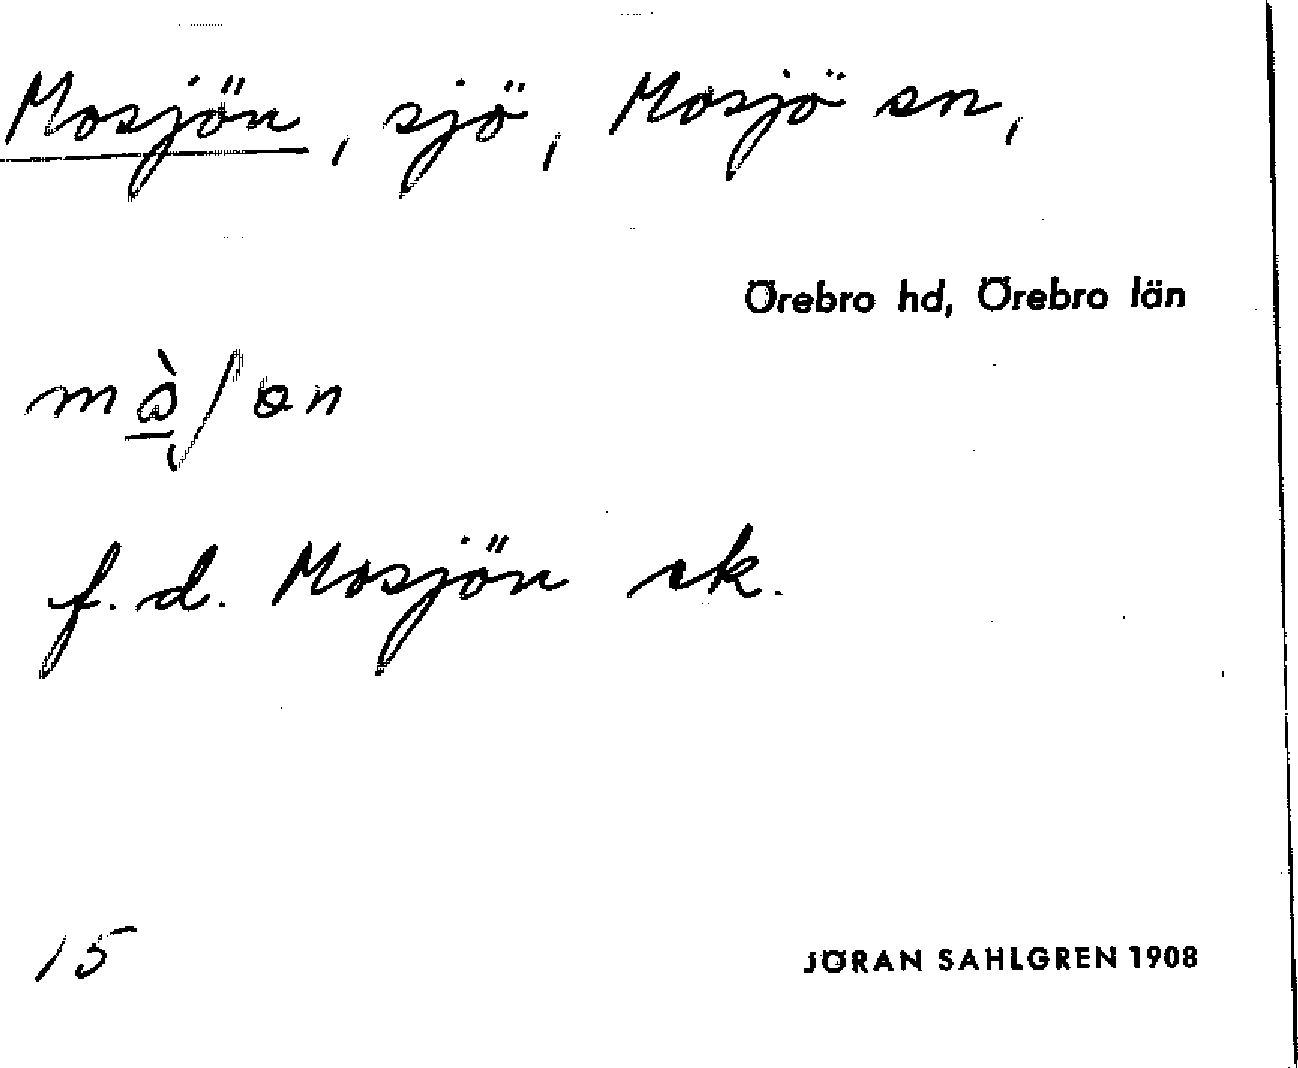 Mosjön, sjö, Mosjö sn,
Örebro hd, Örebro län
f. d. Mosjön ek.
15
JÖRAN SAHLGREN 1908